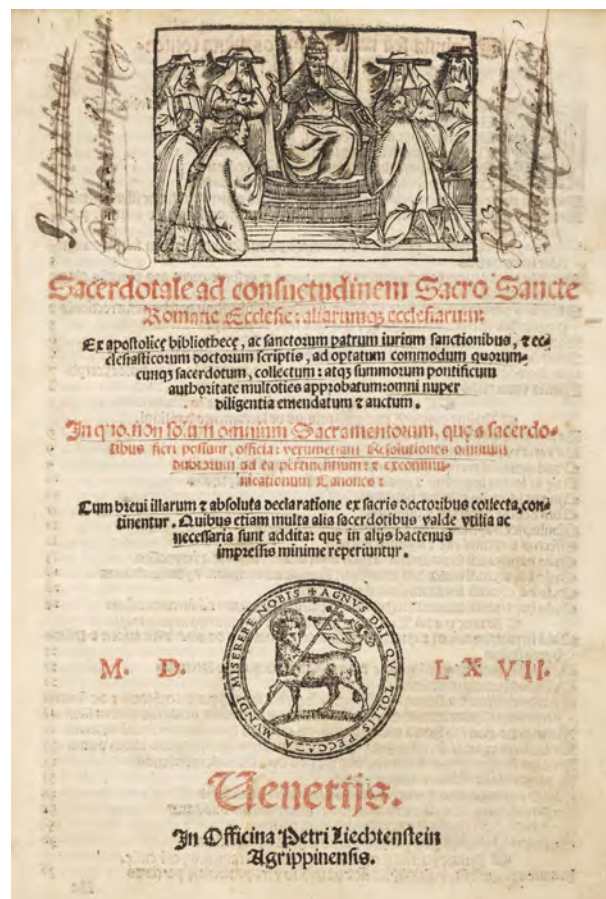 Sacerdotale ad consuetudinem Sacro Sancte
Romane Ecclesie: aliarumq; ecclesiarum:
Ex apostolicę bibliothecę, ac sanctorum patrum iurium sanctionibus, ⁊ ec-
clesiasticorum doctorum scriptis, ad optatum commodum quorum-
cunq; sacerdotum, collectum: atq; summorum pontificum
authoritate multoties approbatum: omni nuper
diligentia emendatum ⁊ auctum.
In quo, non solum omnium Sacramentorum, quę a sacerdo-
tibus fieri possunt, officia: verumetiam Resolutiones omnium
dubiorum ad ea pertinentium: ⁊ excommu-
nicationum Canones:
Cum breui illarum ⁊ absoluta declaratione ex sacris doctoribus collecta, con-
tinentur. Quibus etiam multa alia sacerdotibus valde vtilia ac
necessaria sunt addita: quę in alijs hactenus
impressis minime reperiuntur.
✠ AGNVS DEI QVI TOLLIS PECCATA MVNDI MISERERE NOBIS
M. D. LXVII.
Venetijs.
In Officina Petri Liechtenstein
Agrippinensis.